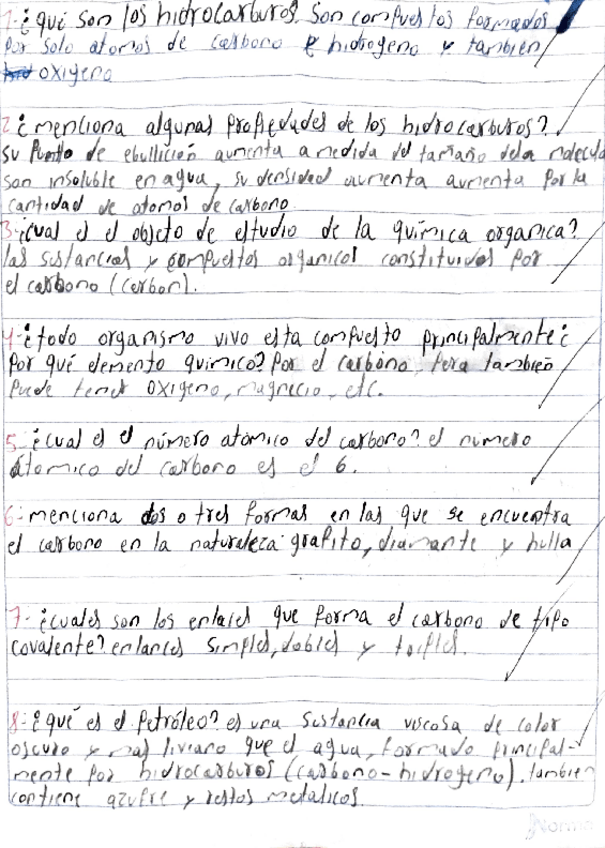 1-¿qué son los hidrocarburos? Son compuestos formados
por solo atomos de carbono e hidrogeno y tambien
oxigeno
2-¿menciona algunas propiedades de los hidrocarburos?
su punto de ebullición aumenta a medida del tamaño dela molecula
son insoluble en agua, su densidad aumenta aumenta por la
cantidad de atomos de carbono
3-¿cual es el objeto de estudio de la química organica?
las sustancias y compuestos organicos constituidos por
el carbono (carbon).
4-¿todo organismo vivo esta compuesto principalmente¿
por qué elemento quimico? Por el carbono, pera tambien
puede tener oxigeno, magnecio, etc.
5-¿cual es el número atómico del carbono? el numero
átomico del carbono es el 6.
6-menciona dos o tres formas en las que se encuentra
el carbono en la naturaleza: grafito, diamante y hulla
7-¿cuales son los enlaces que forma el carbono de tipo
covalente? enlances simples, dobles y triples.
8-¿qué es el Petróleo? es una sustancia viscosa de color
oscuro y mas liviano que el agua, formado principal-
mente por hidrocarburos (carbono-hidrogeno). tambien
contiene azufre y restos metalicos.
Norma